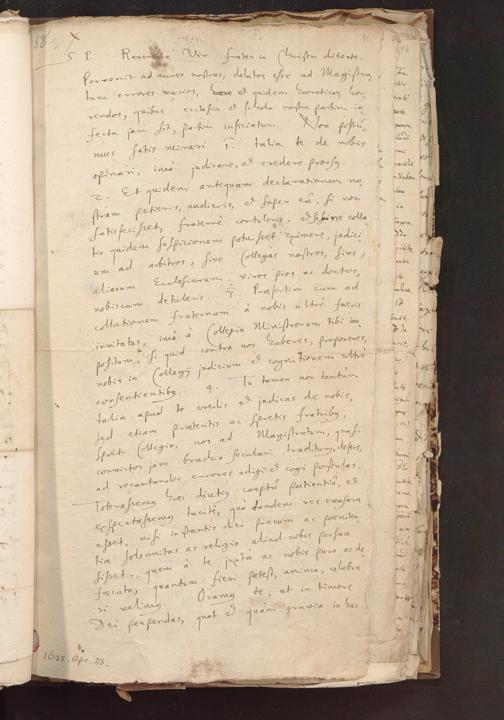 58
S. P. Reverende Vir frater in Christo dilecte.
Pervenit ad aures nostras, delatos esse ad Magistra
tum errores varios, et quidem haereticos, hor
rendos, quibus ecclesia et schola nostra partim in
fecta jam sit, partim inficiatur. Non possu
mus satis mirari 1. talia te de nobis
opinari, imò judicare, et credere
2. Et quidem antequam declarationem no
stram petieris, audieris, et super eâ, si non
satisfecisset, fraternè contuleris, et sine colla
tio quidem suspicionem potuisset eximere, judici
um ad arbitros, sive Collegas nostros, sive
aliarum Ecclesiarum viros pios ac doctos,
nobiscum detuleris. 3 Praesertim cum ad
collationem fraternam à nobis ultrò fueris
invitatus, imò à Collegio Ministrorum tibi im
positum, si quid contra nos haberes, proponeres,
nobis in Collegij judicium et cognitionem ultrò
consentientibus. 4. Tu tamen non tantùm
talia apud te credis et judicas de nobis,
sed etiam praeteritis ac spretis fratribus,
spreto Collegio, nos ad Magistratum, quasi
convictos jam brachio seculari traditum, defers,
ad recantandos errores adigi et cogi postulas.
Tolerassemus haec diutius coeptâ patientiâ, et
exspectassemus tacitè, quo tandem res evasura
esset, nisi instantis diei precum ac poeniten
tiae solennitas ac religio aliud nobis persua
sisset, quem à te juxta ac nobis puro ac de
foecato, quantum fieri potest, animo, celebra
ri velimus. Oramus te, ut in timore
Dei perpendas, quot et quàm gravia in hac
1638. Apr. 23.